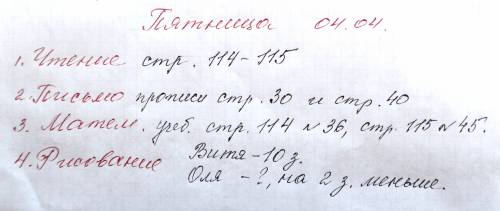 Пятница 04.04.
1. Чтение стр. 114-115
2. Письмо прописи стр. 30 и стр. 40
3. Матем. учеб. стр. 114 № 36, стр. 115 № 45.
4. Рисование Витя - 10 з.
Оля - ?, на 2 з. меньше.